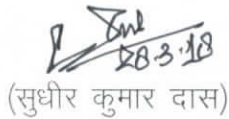 28.3.18
(सुधीर कुमार दास)